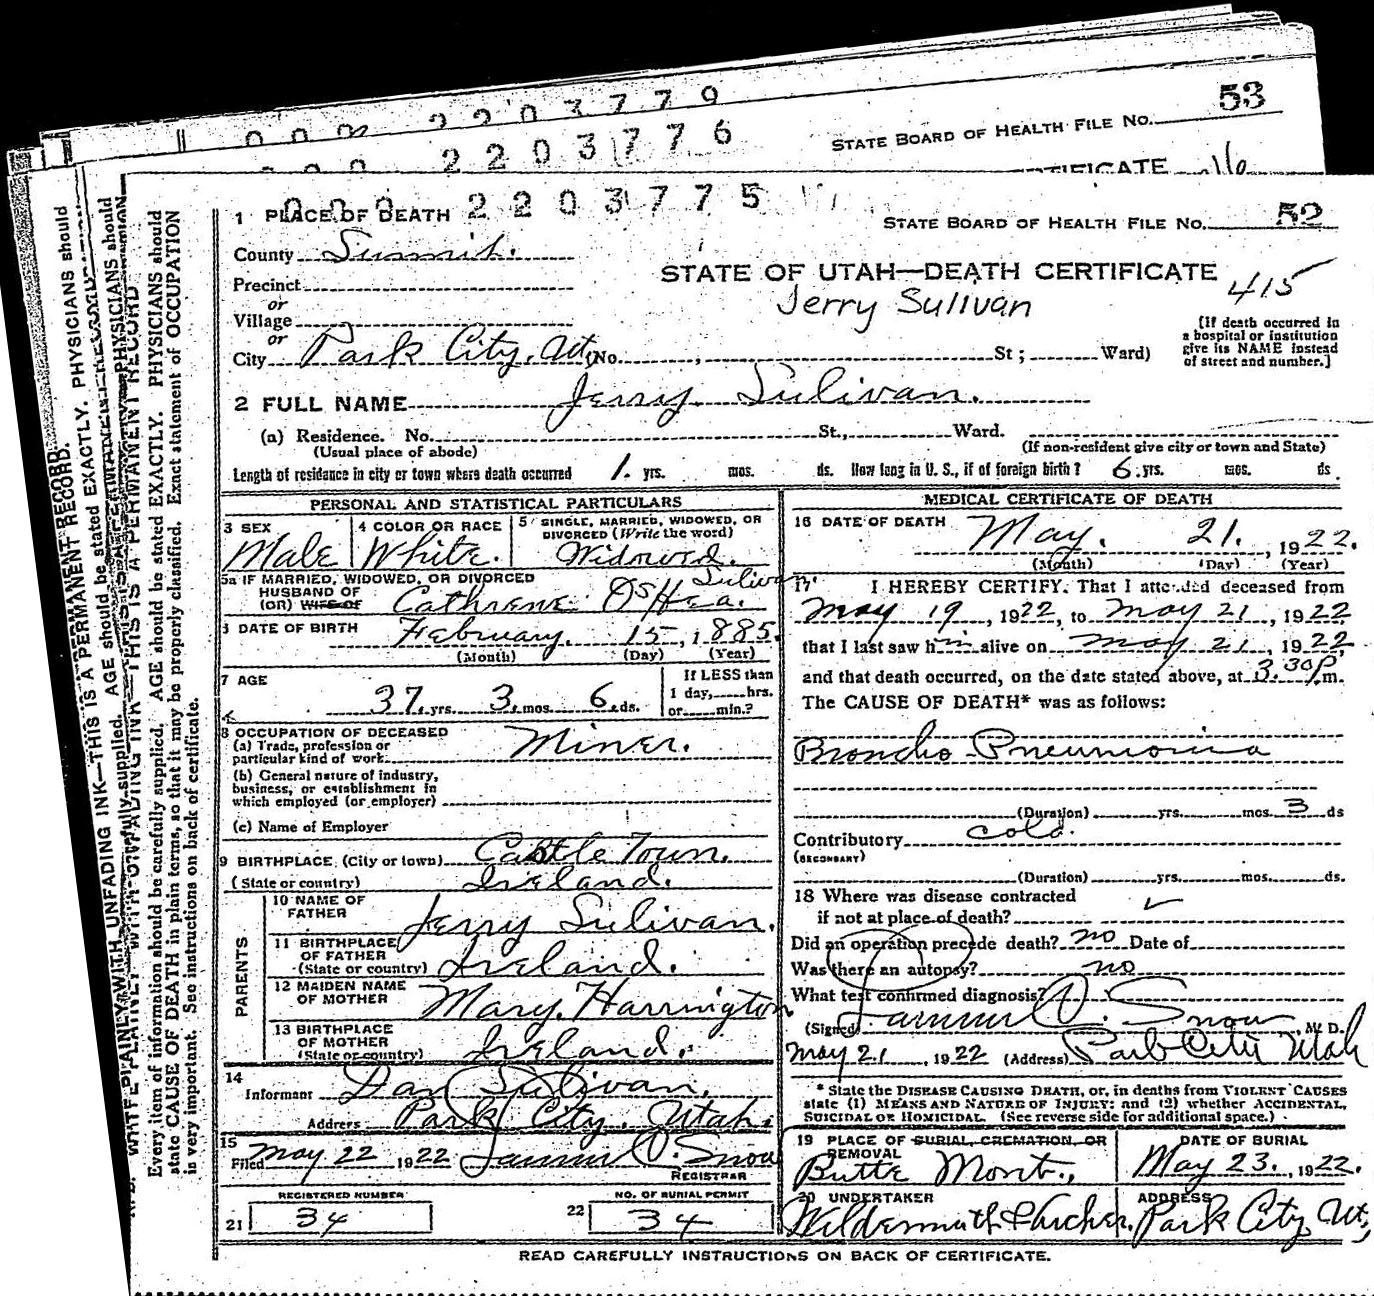 2203779
53
2203776
STATE BOARD OF HEALTH FILE NO.
CERTIFICATE
2203775
1 PLACE OF DEATH
STATE BOARD OF HEALTH FILE NO. 52
County Summit.
STATE OF UTAH—DEATH CERTIFICATE 415
Precinct
Jerry Sulivan
or
Village
or
City Park City, Ut. (No. , St ; Ward)
[If death occurred in
a hospital or institution
give its NAME instead
of street and number.]
2 FULL NAME Jerry Sulivan.
(a) Residence. No. St., Ward.
(Usual place of abode)
(If non-resident give city or town and State)
Length of residence in city or town where death occurred 1. yrs. mos. ds. How long in U. S., if of foreign birth? 6. yrs. mos. ds
PERSONAL AND STATISTICAL PARTICULARS
3 SEX Male
4 COLOR OR RACE White.
5 SINGLE, MARRIED, WIDOWED, OR
DIVORCED (Write the word)
Widowed.
5a IF MARRIED, WIDOWED, OR DIVORCED
HUSBAND OF
(OR) WIFE OF Cathrene OsHea. Sulivan.
6 DATE OF BIRTH February. 15, 1885.
(Month) (Day) (Year)
7 AGE 37. yrs. 3. mos. 6. ds.
If LESS than
1 day, hrs.
or min.?
8 OCCUPATION OF DECEASED
(a) Trade, profession or
particular kind of work Miner.
(b) General nature of industry,
business, or establishment in
which employed (or employer)
(c) Name of Employer
9 BIRTHPLACE (City or town) Castle Town.
(State or country) Ireland.
PARENTS
10 NAME OF
FATHER Jerry Sulivan.
11 BIRTHPLACE
OF FATHER
(State or country) Ireland.
12 MAIDEN NAME
OF MOTHER Mary. Harrington
13 BIRTHPLACE
OF MOTHER
(State or country) Ireland.
14
Informant Dan Sulivan,
Address Park City, Utah.
15
Filed May 22, 1922
REGISTRAR
REGISTERED NUMBER
21 34
NO. OF BURIAL PERMIT
22 34
MEDICAL CERTIFICATE OF DEATH
16 DATE OF DEATH May. 21., 1922.
(Month) (Day) (Year)
17 I HEREBY CERTIFY. That I attended deceased from
May 19, 1922, to May 21, 1922
that I last saw him alive on May 21, 1922
and that death occurred, on the date stated above, at 3.30 P.m.
The CAUSE OF DEATH* was as follows:
Broncho Pneumonia
(Duration) yrs. mos. 3 ds
Contributory cold.
(SECONDARY)
(Duration) yrs. mos. ds.
18 Where was disease contracted
if not at place of death?
Did an operation precede death? no Date of
Was there an autopsy? no
What test confirmed diagnosis?
(Signed) Snow, M. D.
May 21, 1922 (Address) Park City Utah
* State the DISEASE CAUSING DEATH, or, in deaths from VIOLENT CAUSES
state (1) MEANS AND NATURE OF INJURY; and (2) whether ACCIDENTAL,
SUICIDAL OR HOMICIDAL. (See reverse side for additional space.)
19 PLACE OF BURIAL, CREMATION, OR
REMOVAL
Butte Mont.,
DATE OF BURIAL
May 23., 1922.
20 UNDERTAKER
ADDRESS
Park City, Ut,
READ CAREFULLY INSTRUCTIONS ON BACK OF CERTIFICATE.
WRITE PLAINLY WITH UNFADING INK—THIS IS A PERMANENT RECORD.
Every item of information should be carefully supplied. AGE should be stated EXACTLY. PHYSICIANS should
state CAUSE OF DEATH in plain terms, so that it may be properly classified. Exact statement of OCCUPATION
is very important. See instructions on back of certificate.